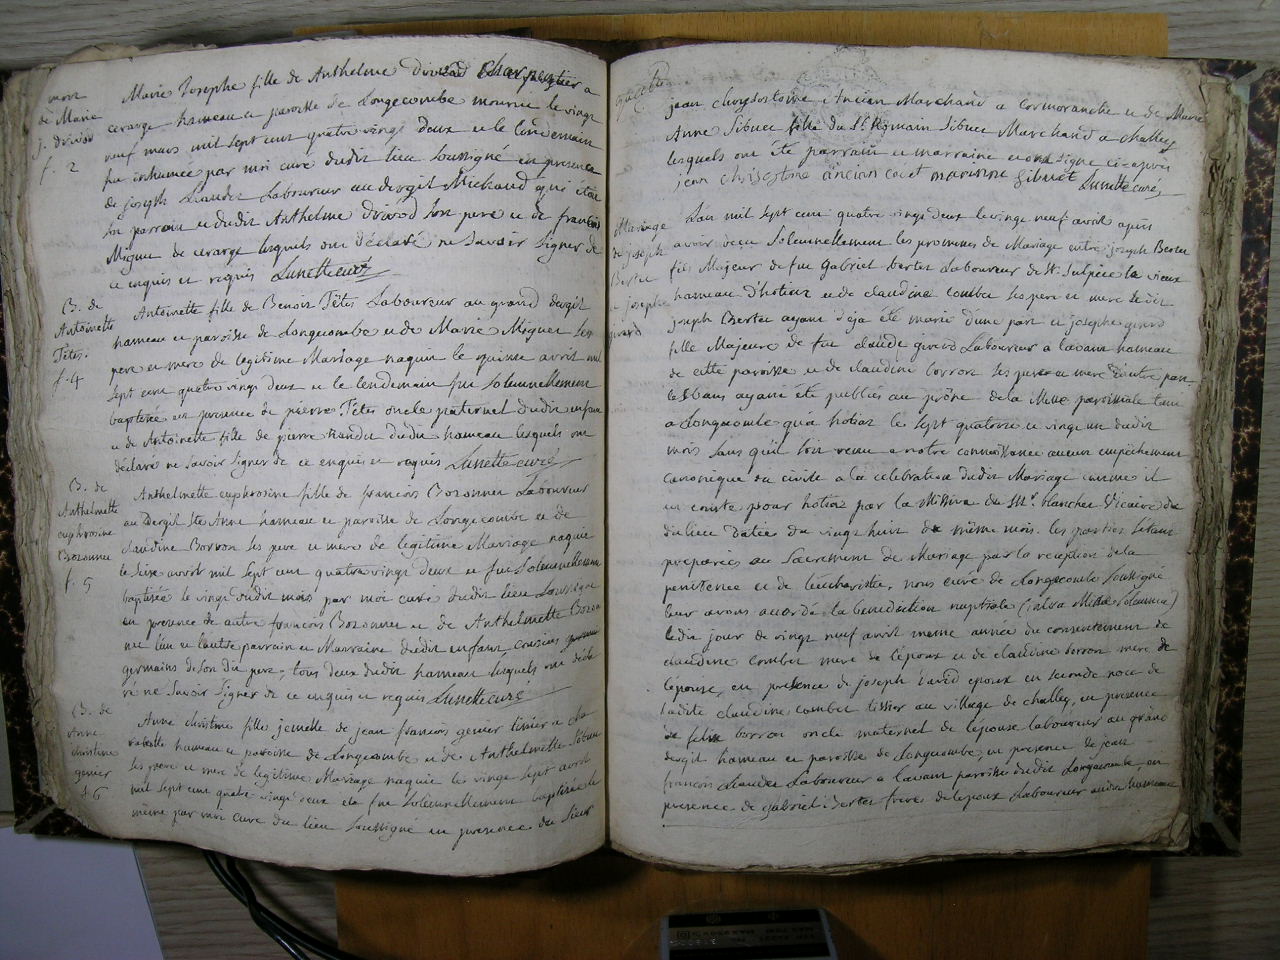 mort
de Marie
j. drivod
f. 2
Marie Josephe fille de Anthelme drivod charpentier a
cerarge hameau et paroisse de Longecombe mourut le vingt
neuf mars mil sept cent quatre vingt deux et le lendemain
fut inhumée par moi curé dudit lieu soussigné en presence
de joseph Laboureur au dergit Michaud qui etoit
son parrain et dudit Anthelme drivod son pere et de francois
Miguet de cerarge lesquels ont déclaré ne savoir signer de
ce enquis et requis Lunette curé
B. de
Antoinette
Tétes:
f. 4
Antoinette fille de Benoit Tétes Laboureur au grand dergit
hameau et paroisse de Longecombe et de Marie Miguet ses
pere et mere de legitime Mariage naquit le quinze avril mil
sept cent quatre vingt deux et le lendemain fut solemnellement
baptisée en presence de pierre Tétes oncle paternel dudit enfant
et de Antoinette fille de pierre dudit hameau lesquels ont
déclaré ne savoir signer de ce enquis et requis Lunette curé
B. de
Anthelmette
euphrosine
Bozonnet
f. 5
Anthelmette euphrosine fille de francois Bozonnet Laboureur
au Dergit Ste Anne hameau et paroisse de Longecombe et de
claudine Borron ses pere et mere de legitime Mariage naquit
le dix avril mil sept cent quatre vingt deux et fut solemnellement
baptisée le vingt dudit mois par moi curé dudit lieu soussigné
en presence de autre francois Bozonnet et de Anthelmette Bozon
net l'un et l'autre parrain et Marraine dudit enfant cousins
germains de son dit pere, tous deux dudit hameau lesquels ont décla
ré ne savoir signer de ce enquis et requis Lunette curé
B. de
Anne
christine
genier
f 6
Anne christine fille jemelle de jean francois genier tissier a cha
hameau et paroisse de Longecombe et de Anthelmette Sibuet
ses pere et mere de legitime Mariage naquit le vingt sept avril
mil sept cent quatre vingt deux et a fut solemnellement baptisée le
même par moi curé du lieu soussigné en presence du sieur
jean chrysostome Ancien Marchand a cormoranche et de Marie
Anne Sibuet fille du Sr. Romain Sibuet Marchand a challey
lesquels ont été parrain et marraine et ont signé ci-après
jean chrisostome ancian marianne sibuet Lunette curé
Mariage
de joseph
Bertet
et josephe
girard
L'an mil sept cent quatre vingt deux le vingt neuf avril après
avoir reçu solemnellement les promesses de Mariage entre joseph Bertet
fils Majeur de feu Gabriel bertet Laboureur de St. Sulpice le vieux
hameau d'hotiaz et de claudine combet ses pere et mere ledit
joseph Bertet ayant deja été marié d'une part et josephe girard
fille Majeure de feu claude girard Laboureur a lavant hameau
de cette paroisse et de claudine borron ses pere et mere d'autre part
les bans ayant été publiés au prône de la Messe paroissiale tant
a Longecombe qu'a hotiaz le sept quatorze et vingt un dudit
mois sans qu'il soit venu a notre connoissance aucun empêchement
canonique ou civile a la celebration dudit Mariage comme il
en conste pour hotiaz par la Missive du Mr. blanchet Vicaire du
dit lieu datée du vingt huit du même mois. les parties s'etant
preparées au Sacrement de Mariage par la reception de la
penitence et de l'eucharistie, nous curé de Longecombe soussigné
leur avons accordé la benediction nuptiale (salva Missa solemnia)
ledit jour de vingt neuf avril meme année du consentement de
claudine combet mere de l'époux et de claudine borron mere de
l'épouse, en presence de joseph david epoux en seconde noce de
ladite claudine combet tissier au village de challey, en presence
de felix borron oncle maternel de l'épouse laboureur au grand
dergit hameau et paroisse de Longecombe, en presence de jean
francois Laboureur a lavant paroisse dudit Longecombe, en
presence de gabriel Bertet frere de l'époux Laboureur audit hameau